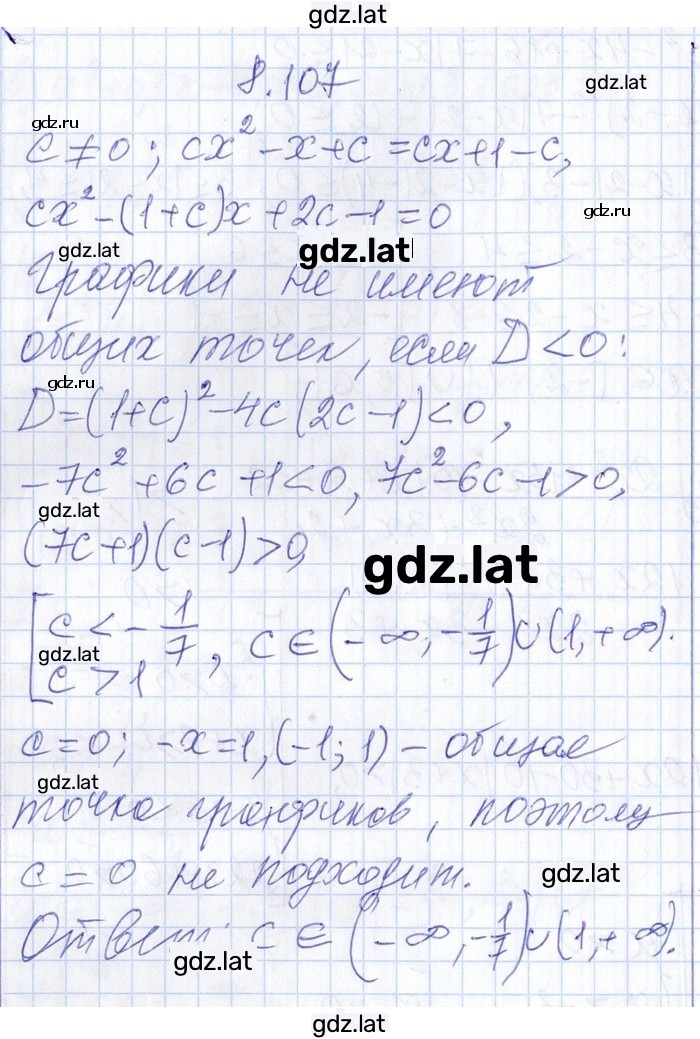 gdz.lat
8.107
gdz.lat
gdz.ru
c ≠ 0; cx² - x + c = cx + 1 - c,
cx² - (1 + c)x + 2c - 1 = 0
gdz.ru
gdz.lat
gdz.lat
Графики не имеют
общих точек, если D < 0:
gdz.ru
D = (1 + c)² - 4c(2c - 1) < 0,
-7c² + 6c + 1 < 0, 7c² - 6c - 1 > 0,
gdz.lat
(7c + 1)(c - 1) > 0,
gdz.lat
[c < -1/7
gdz.lat
c > 1, c ∈ (-∞, -1/7) ∪ (1, +∞).
c = 0; -x = 1, (-1; 1) - общая
gdz.lat
точка гранфиков, поэтому
c = 0 не подходит.
gdz.lat
Ответ: c ∈ (-∞, -1/7) ∪ (1, +∞).
gdz.lat
gdz.lat